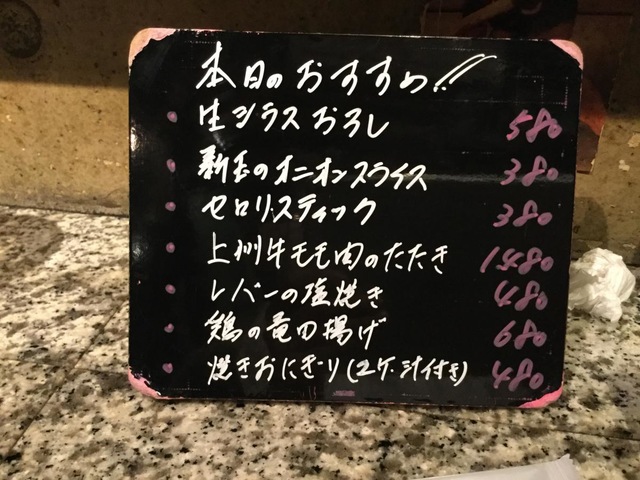 本日のおすすめ!!
・生シラスおろし 580
・新玉のオニオンスライス 380
・セロリスティック 380
・上州牛モモ肉のたたき 1480
・レバーの塩焼き 480
・鶏の竜田揚げ 680
・焼きおにぎり(2ケ.汁付き) 480